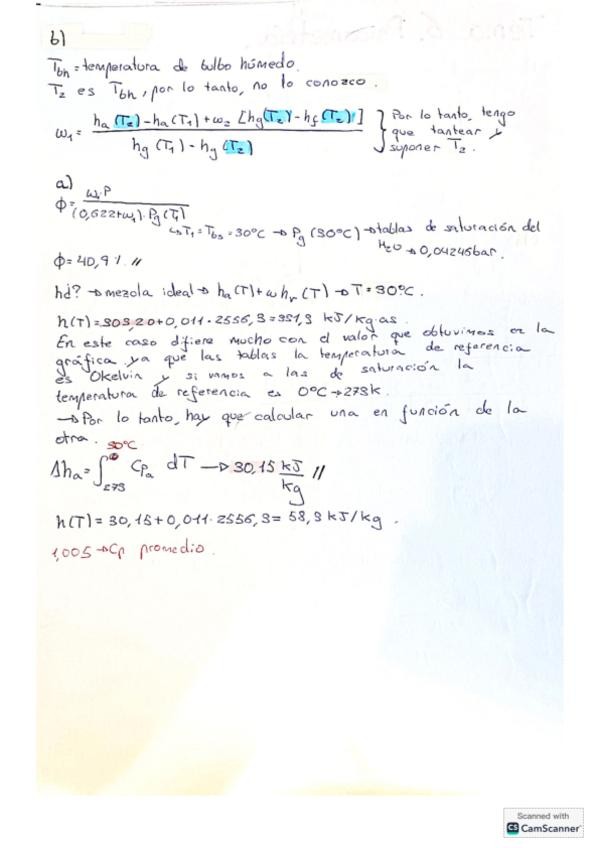 b)
Tbh = temperatura de bulbo húmedo.
T2 es Tbh, por lo tanto, no lo conozco.
ω1 = (ha(T2) - ha(T1) + ω2 [hg(T2) - hf(T2)]) / (hg(T1) - hg(T2)) } Por lo tanto, tengo que tantear y suponer T2.
a)
Φ = ω·P / ((0,622+ω1)·Pg(T1))
↳ T1 = Tbs = 30°C → Pg (30°C) → tablas de saturación del H2O → 0,04246bar.
Φ = 40,9 % //
hd? → mezcla ideal → ha(T) + ω hv (T) → T = 30°C.
h(T) = 303,20 + 0,011 · 2556,3 = 331,3 kJ/kg·as.
En este caso difiere mucho con el valor que obtuvimos en la
gráfica ya que las tablas la temperatura de referencia
es 0kelvin y si vamos a las de saturación la
temperatura de referencia es 0°C → 273k.
→ Por lo tanto, hay que calcular una en función de la
otra.
Δha = ∫ 273 30°C Cpa dT → 30,15 kJ/kg //
h(T) = 30,15 + 0,011 · 2556,3 = 58,3 kJ/kg.
1,005 → Cp promedio.
Scanned with
CS CamScanner